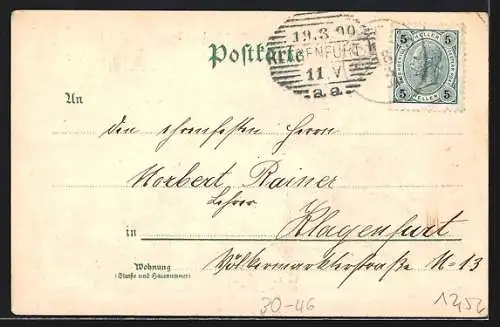 Postkarte
19.3.00
GENFURT
11.V
a.a.
5 5
HELLER
5 5
An
den ehrenfesten Herrn
Norbert Rainer
Lehrer
in Klagenfurt
Wohnung
(Straße und Hausnummer)
Völkermarkterstraße N-13
30-46